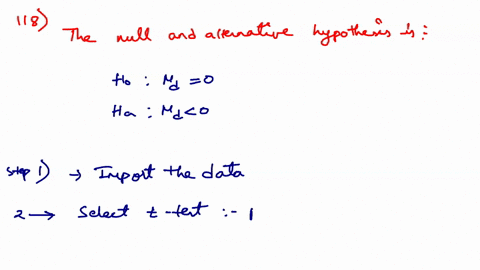 118) The null and alternative hypothesis is :
Ho : Md = 0
Ha : Md < 0
Step 1) → Import the data
2 → Select t-test :- 1